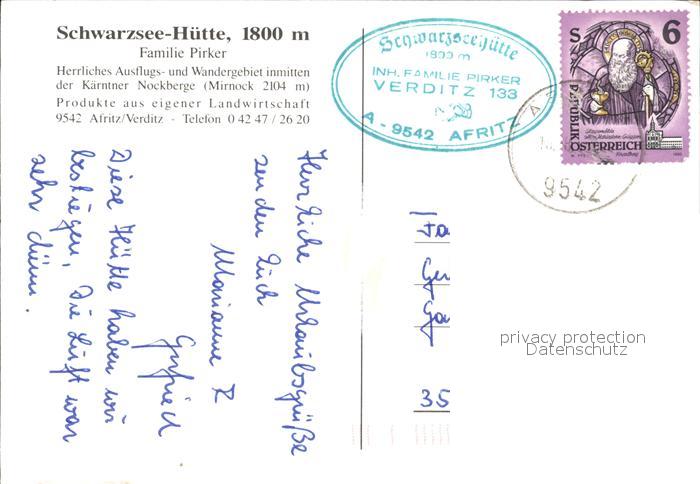 Schwarzsee-Hütte, 1800 m
Familie Pirker
Herrliches Ausflugs- und Wandergebiet inmitten
der Kärntner Nockberge (Mirnock 2104 m)
Produkte aus eigener Landwirtschaft
9542 Afritz/Verditz - Telefon 0 42 47 / 26 20
Schwarzseehütte
1800 m
INH. FAMILIE PIRKER
VERDITZ 133
A - 9542 AFRITZ
S 6
REPUBLIK
ÖSTERREICH
9542
Herzliche Urlaubsgrüße
senden Euch
Marianne
Gottfried
Diese Hütte haben wir
bestiegen, Die Luft war
sehr dünn.
Fa
Ge
Ga
35
privacy protection
Datenschutz